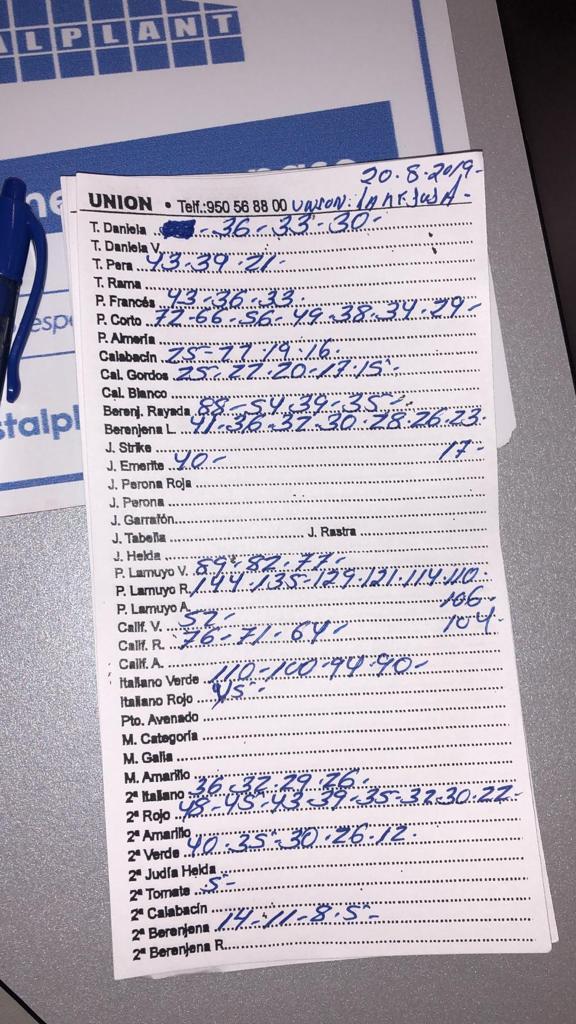 ALPLANT
20-8-2019-
UNION • Telf.:950 56 88 00 UNION:
T. Daniela - 36 - 33 - 30 -
T. Daniela V.
T. Pera 43-39-21-
T. Rama
P. Francés 43-36-33-
P. Corto 72-66-56-49-38-34-29-
P. Almería
Calabacín 25-22-19-16-
Cal. Gordos 25-22-20-17-15-
Cal. Blanco
Berenj. Rayada 88-54-39-35-
Berenjena L. 41-36-32-30-28-26-23-
17-
J. Strike
J. Emerite 40-
J. Perona Roja
J. Perona
J. Garrafón
J. Tabella J. Rastra
J. Helda
P. Lamuyo V. 89-82-77-
P. Lamuyo R. 144-135-129-121-114-110-
106-
104-
P. Lamuyo A.
Calif. V. 52-
Calif. R. 76-71-64-
Calif. A.
Italiano Verde 110-100-94-90-
Italiano Rojo 45-
Pto. Avenado
M. Categoría
M. Galia
M. Amarillo
2ª Italiano 36-32-29-26-
2ª Rojo 48-45-43-39-35-32-30-22-
2ª Amarillo
2ª Verde 40-35-30-26-12-
2ª Judía Helda
2ª Tomate 5-
2ª Calabacín
2ª Berenjena 14-11-8-5-
2ª Berenjena R.